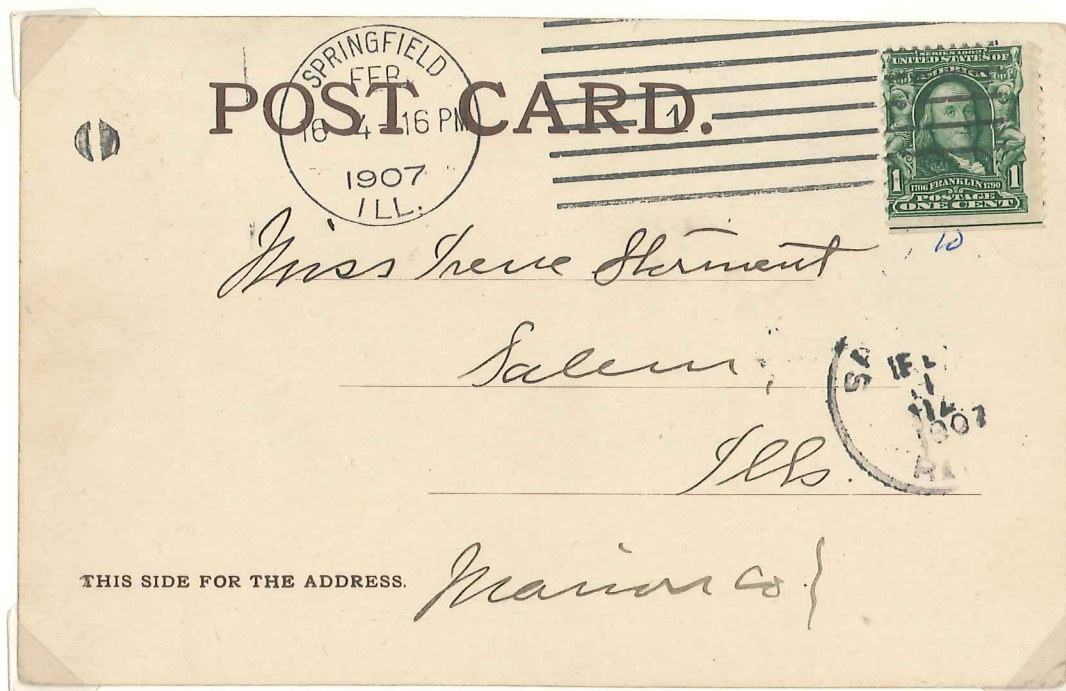 SPRINGFIELD
FEB
16 4 - 16 PM
1907
ILL.
1
POST CARD.
SERIES 1902
UNITED STATES OF
AMERICA
1 1706 FRANKLIN 1790 1
POSTAGE
ONE CENT
10
Miss Irene Storment
Salem,
Ills.
1907
THIS SIDE FOR THE ADDRESS.
Marion Co }